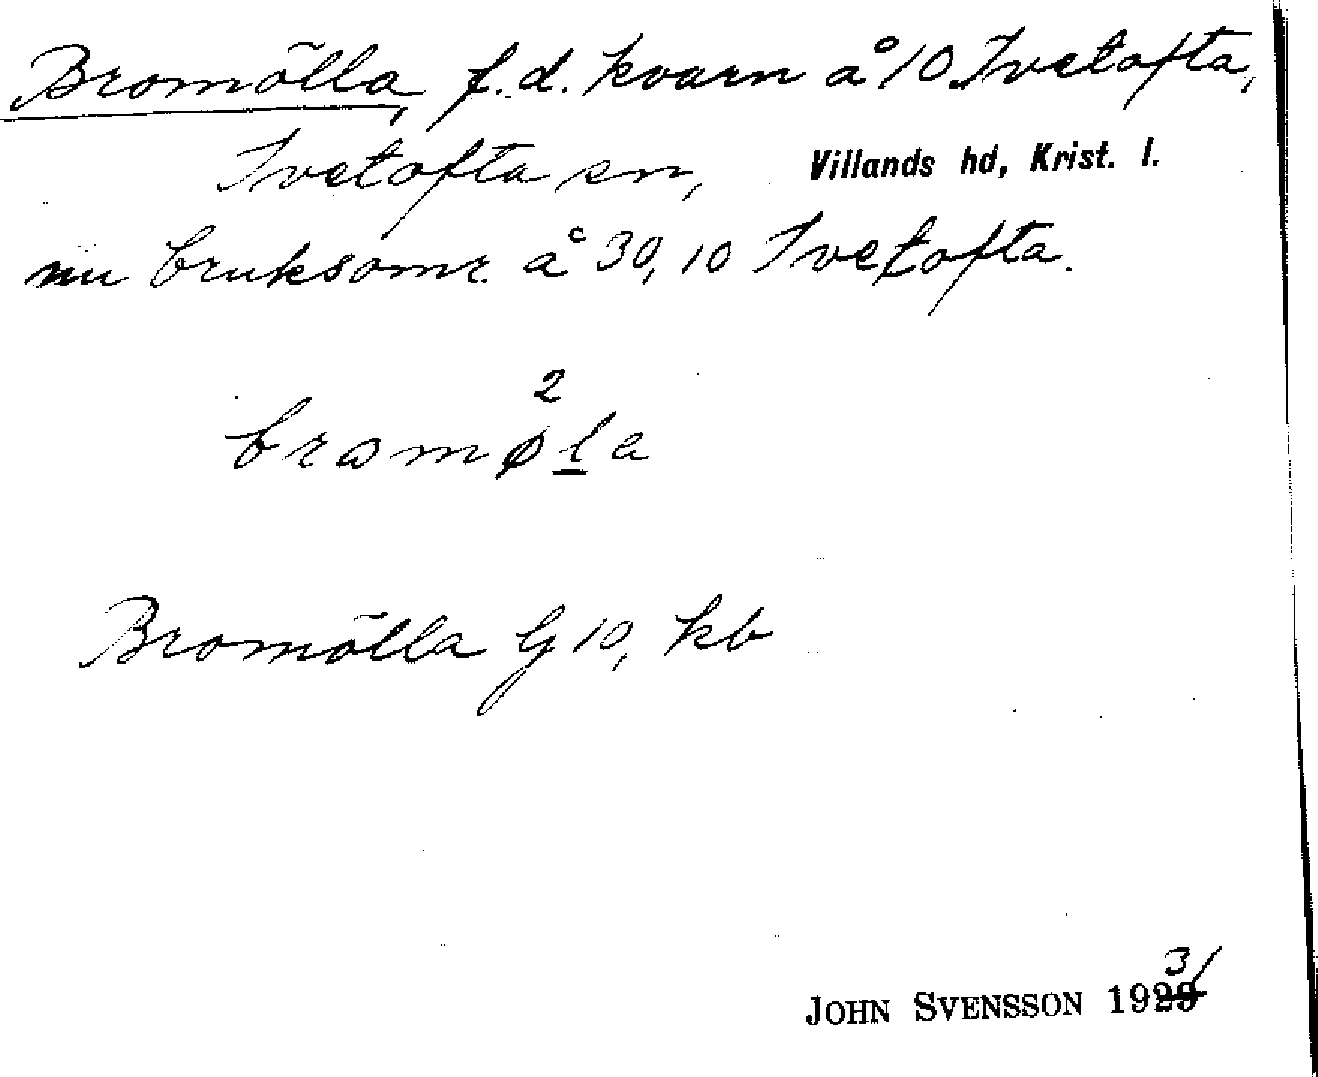 Bromölla, f.d. kvarn å 10 Ivetofta,
Ivetofta sn, Villands hd, Krist. l.
nu bruksomr. å 39, 10 Ivetofta.
2
bramøla
Bromölla G 10, kb
JOHN SVENSSON 1931